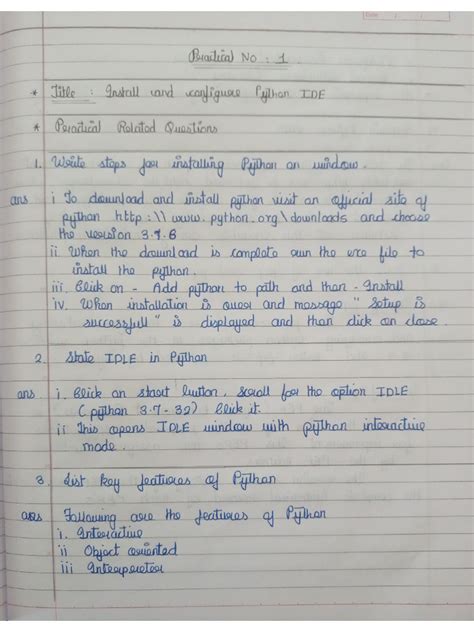 Date : :
Practical No : 1
* Title : Install and configure Python IDE
* Practical Related Questions
1. Write steps for installing Python on window.
ans i To download and install python visit an official site of
python http:\\ www.python.org\downloads and choose
the version 3.7.6
ii When the download is complete run the exe file to
install the python.
iii. Click on - Add python to path and then - Install
iv. When installation is over and message " Setup is
successfull " is displayed and then click on close.
2. State IDLE in Python
ans i. Click on start button, Scroll for the option IDLE
( python 3.7-32) Click it.
ii This opens IDLE window with python interactive
mode.
3. List key features of Python
ans Following are the features of Python
i. Interactive
ii Object oriented
iii Interpreter